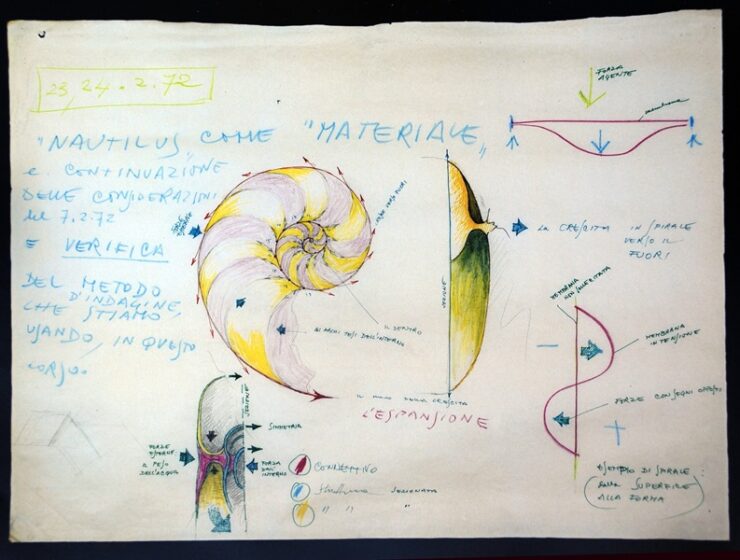 23, 24.2.72
"NAUTILUS" COME "MATERIALE"
e CONTINUAZIONE
DELLE CONSIDERAZIONI
del 7.2.72
E VERIFICA
DEL METODO
D'INDAGINE,
CHE STIAMO
USANDO, IN QUESTO
CORSO.
FORZA
AGENTE
membrana
VERSO FUORI
IL DENTRO
GLI ARCHI TESI DALL'INTERNO
SEZIONE
LA CRESCITA IN SPIRALE
VERSO IL
FUORI
DELLA CRESCITA
L'ESPANSIONE
MEMBRANA
NON
MEMBRANA
IN TENSIONE
FORZE CON SEGNI OPPOSTI
-
+
ESEMPIO DI SPIRALE
DALLA SUPERFICE
ALLA FORMA
SEZIONE
SIMMETRIA
FORZE
ESTERNE
IL PESO
DELL'ACQUA
FORZA
DALL'
INTERNO
CONNETTIVO
SEZIONATA
" " "